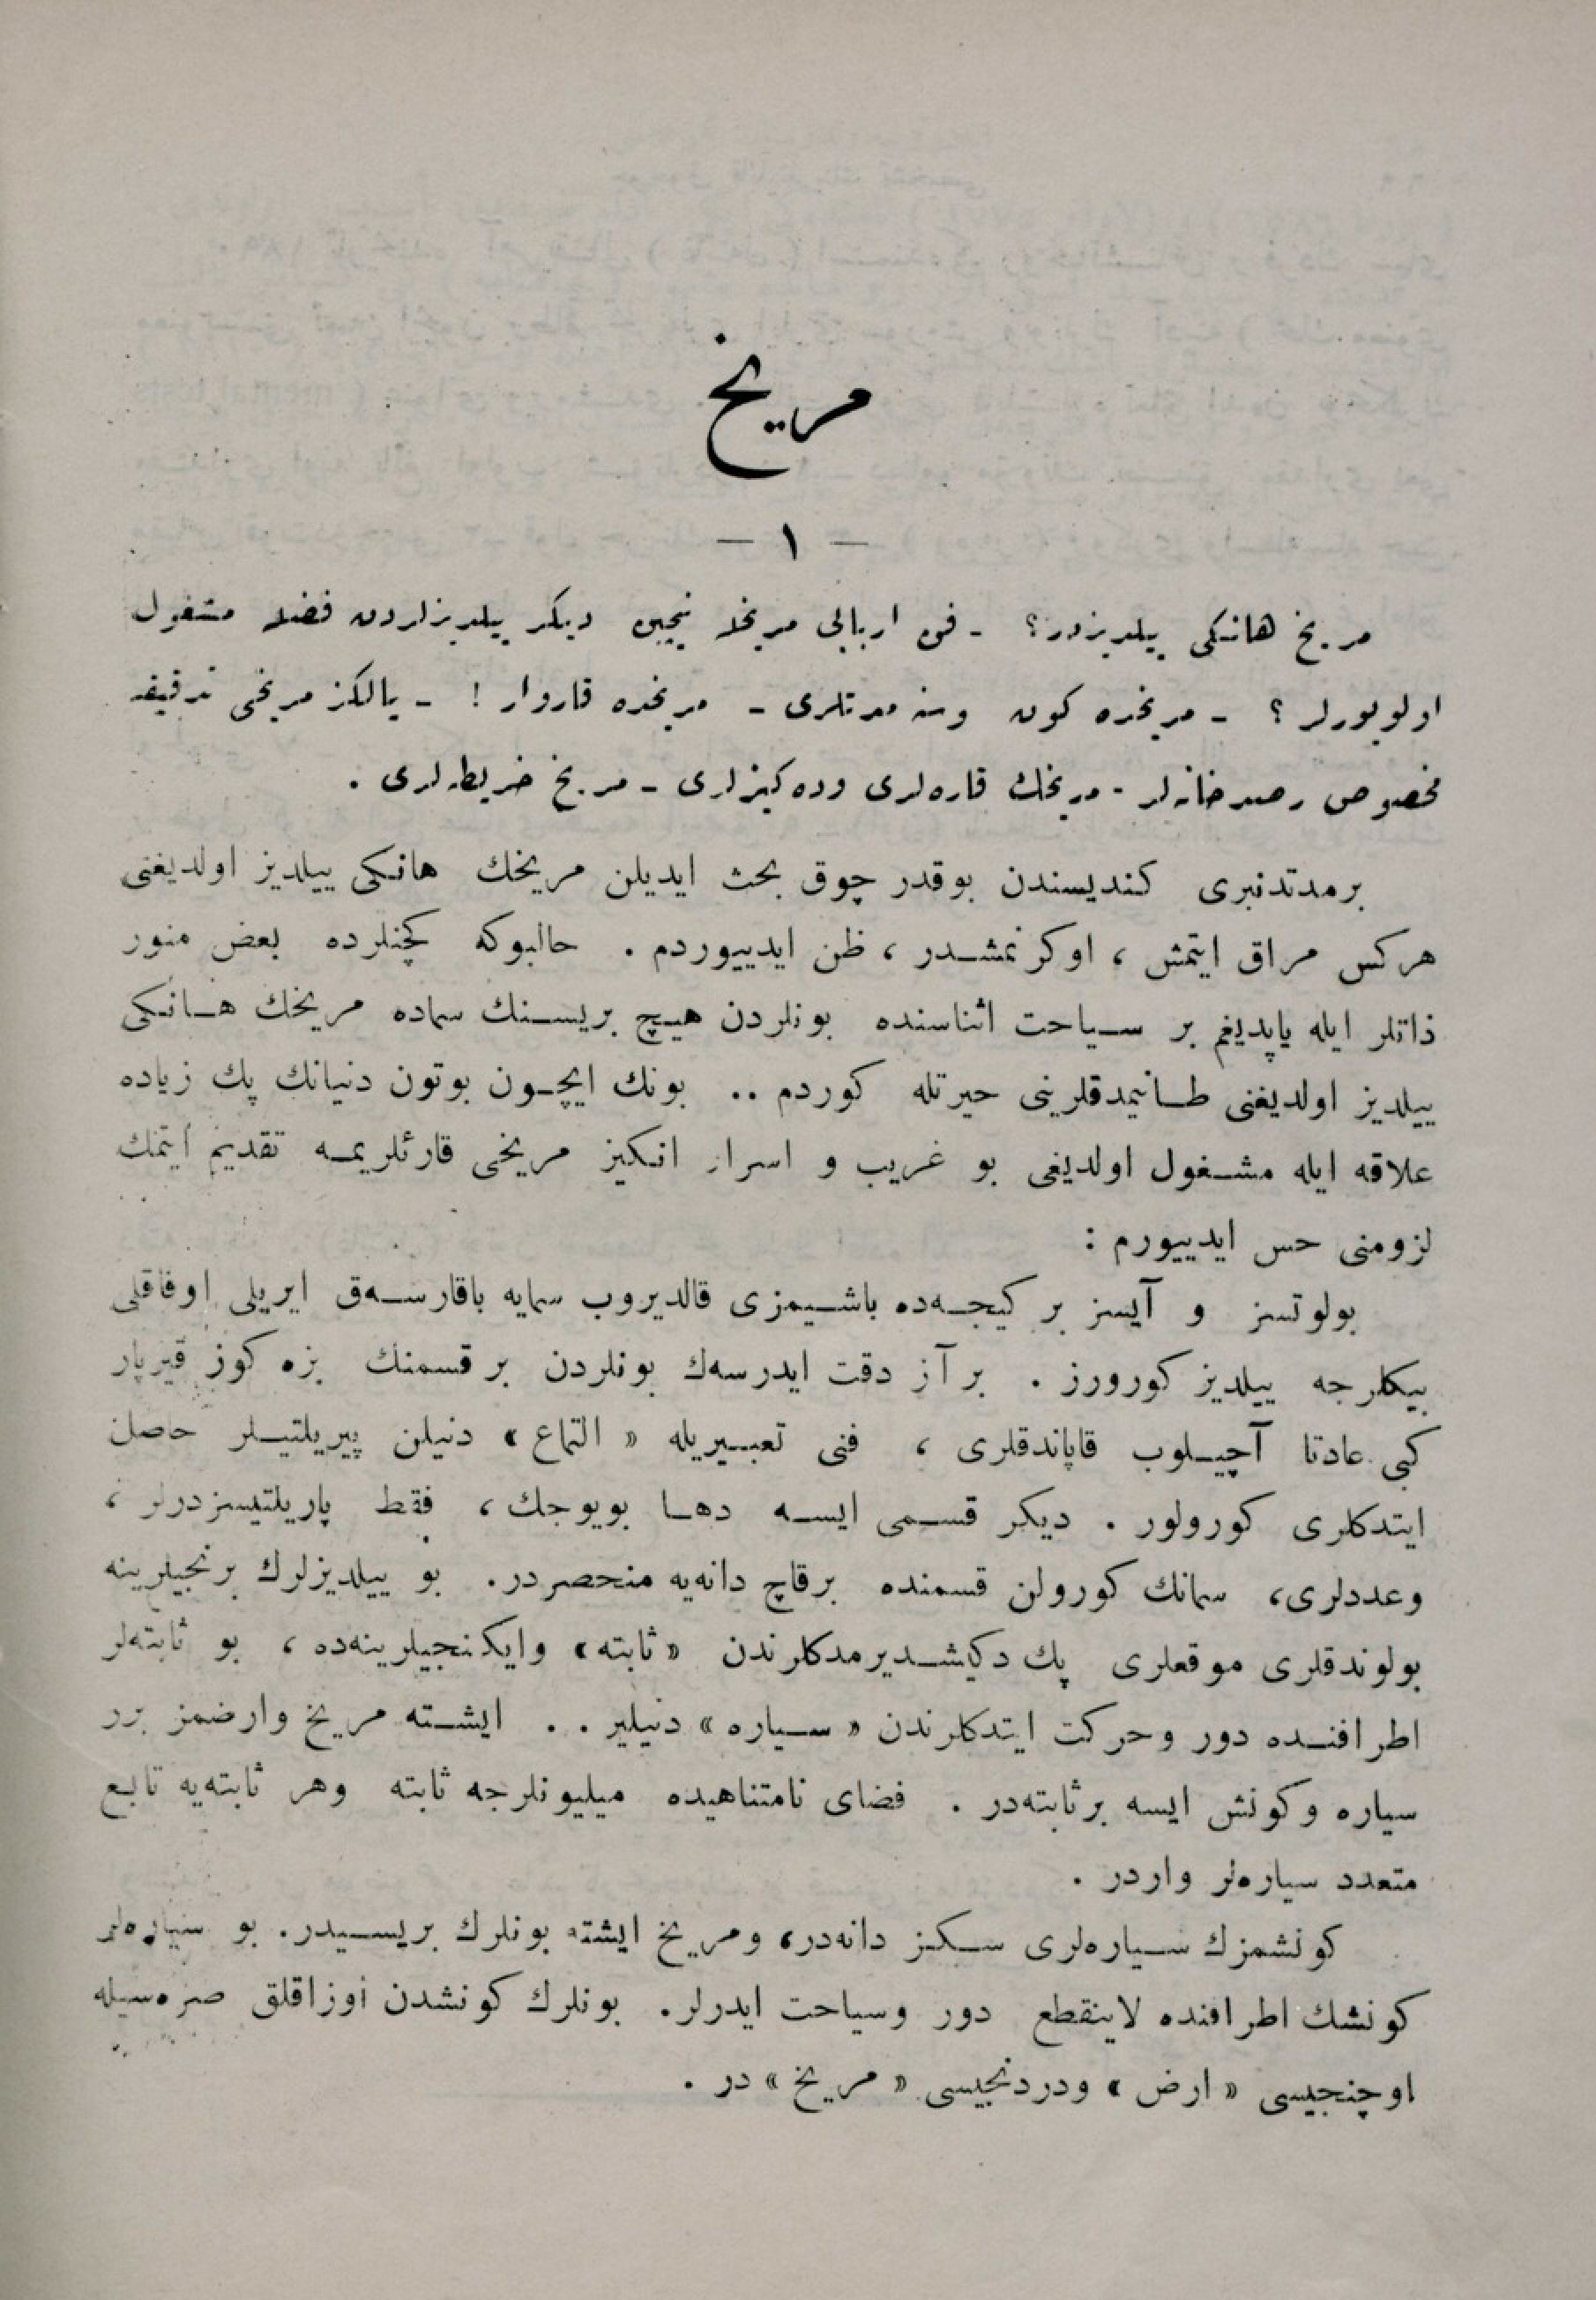 مریخ
— ١ —
مریخ هانکی ییلدیزدر؟ - فن اربابی مریخله نیچین دیکر ییلدیزلردن فضله مشغول
اولویورلر ؟ - مریخده کون وسنه مدتلری - مریخده قاروار ! - یالکز مریخی تدقیقه
مخصوص رصدخانه‌لر - مریخك قاره‌لری وده‌کیزلری - مریخ خریطه‌لری .
برمدتدنبری کندیسندن بوقدر چوق بحث ایدیلن مریخك هانکی ییلدیز اولدیغنی
هرکس مراق ایتمش ، اوکرنمشدر ، ظن ایدییوردم . حالبوکه کچنلرده بعض منور
ذاتلر ایله یاپدیغم بر سیاحت اثناسنده بونلردن هیچ بریسنك سماده مریخك هانکی
ییلدیز اولدیغنی طانیمدقلرینی حیرتله کوردم .. بونك ایچون بوتون دنیانك پك زیاده
علاقه ایله مشغول اولدیغی بو غریب و اسرار انکیز مریخی قارئلریمه تقدیم ایتمك
لزومنی حس ایدییورم :
بولوتسز و آیسز بر کیجه‌ده باشیمزی قالدیروب سمایه باقارسه‌ق ایریلی اوفاقلی
بیکلرجه ییلدیز کورورز . برآز دقت ایدرسه‌ك بونلردن بر قسمنك بزه کوز قیرپار
کبی عادتا آچیلوب قاپاندقلری ، فنی تعبیریله « التماع » دنیلن پیریلتیلر حاصل
ایتدکلری کورولور . دیکر قسمی ایسه دها بویوجك ، فقط پاریلتیسزدرلر ،
وعددلری، سمانك کورولن قسمنده برقاچ دانه‌یه منحصردر. بو ییلدیزلرك برنجیلرینه
بولوندقلری موقعلری پك دکیشدیرمدکلرندن « ثابته » وایکنجیلرینه‌ده ، بو ثابته‌لر
اطرافنده دور وحرکت ایتدکلرندن « سیاره » دنیلیر . . ایشته مریخ وارضمز برر
سیاره وکونش ایسه برثابته‌در . فضای نامتناهیده میلیونلرجه ثابته وهر ثابته‌یه تابع
متعدد سیاره‌لر واردر .
کونشمزك سیاره‌لری سکز دانه‌در، ومریخ ایشته بونلرك بریسیدر. بو سیاره‌لر
کونشك اطرافنده لاینقطع دور وسیاحت ایدرلر. بونلرك کونشدن اوزاقلق صره‌سیله
اوچنجیسی « ارض » ودردنجیسی « مریخ » در .